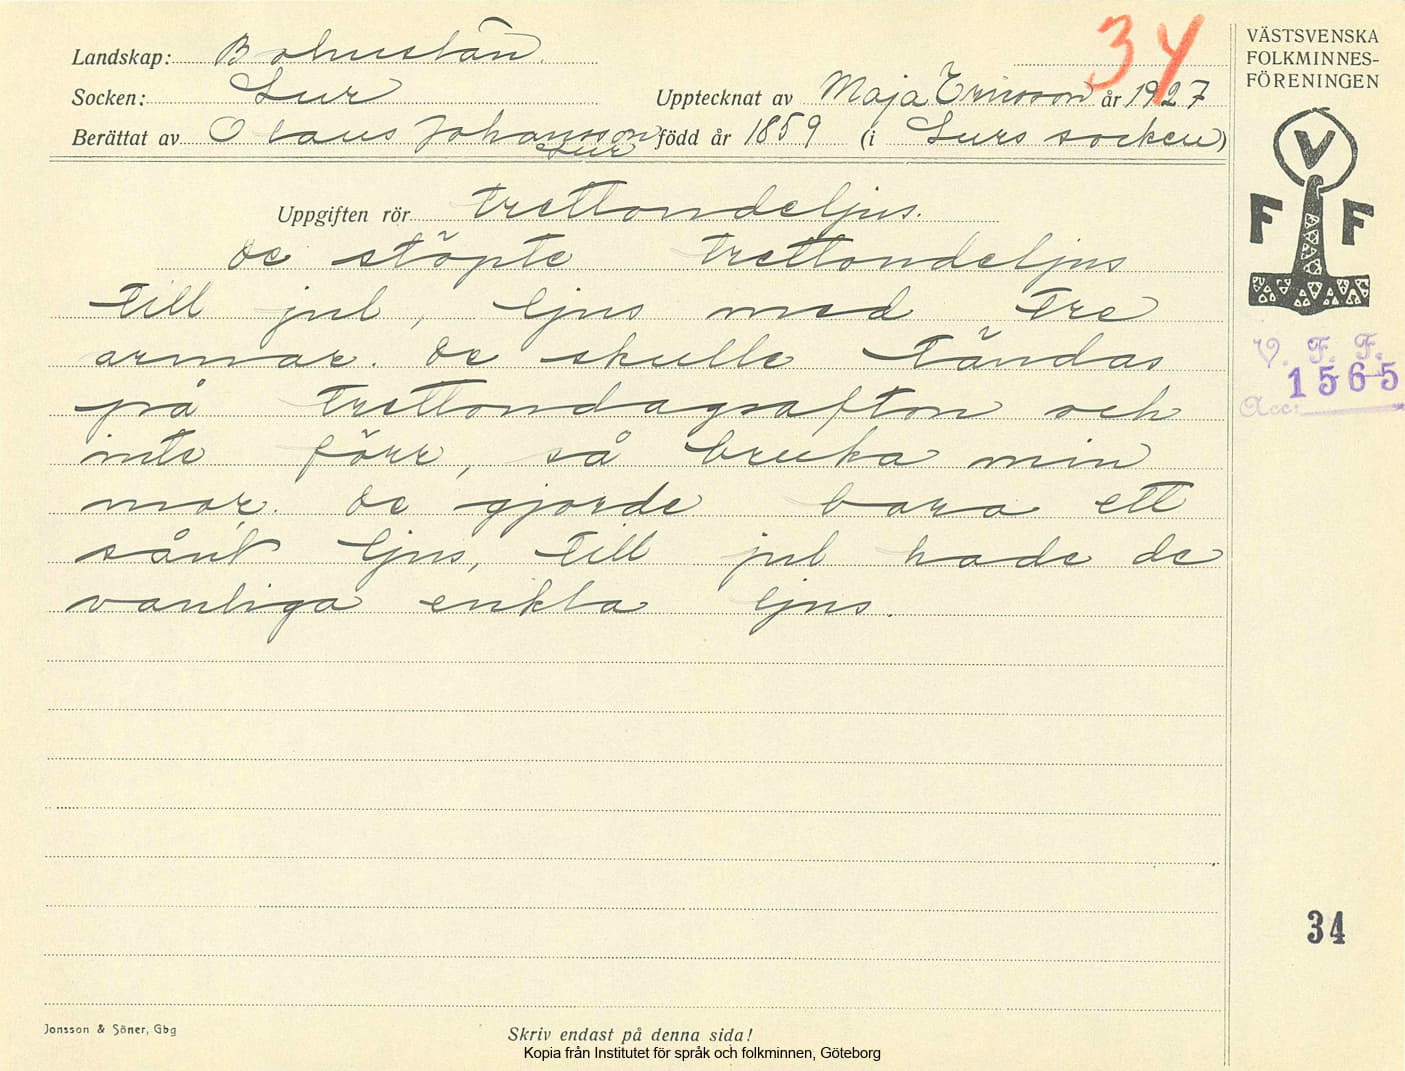 34
Landskap: Bohuslän.
Socken: Lur
Upptecknat av Maja Ericsson år 1927
Berättat av Olaus Johansson född år 1859 (i Lurs socken)
Lur
Uppgiften rör trettondeljus.
De stöpte trettondeljus
till jul, ljus med tre
armar. De skulle tändas
på trettondagsafton och
inte förr, så bruka min
mor. De gjorde bara ett
sånt ljus, till jul hade de
vanliga enkla ljus.
Jonsson & Söner, Gbg
Skriv endast på denna sida!
Kopia från Institutet för språk och folkminnen, Göteborg
VÄSTSVENSKA
FOLKMINNES-
FÖRENINGEN
V
F F
V. F. F.
1565
Acc:
34